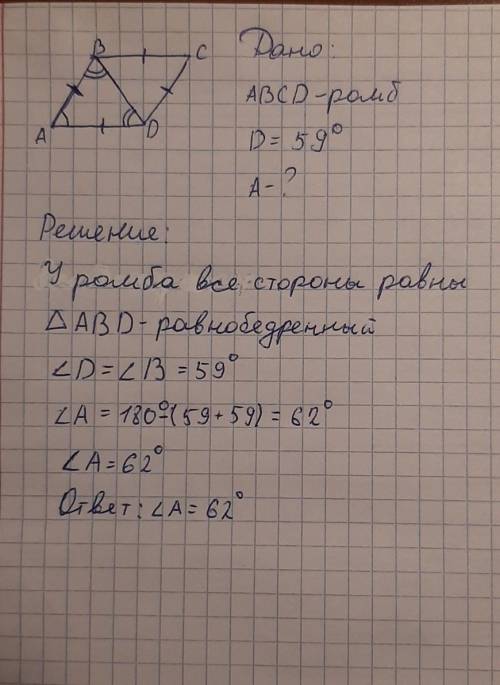 B
C
A
D
Дано:
ABCD-ромб
D = 59°
A-?
Решение:
У ромба все стороны равны
△ABD-равнобедренный
∠D=∠B = 59°
∠A = 180°-(59+59) = 62°
∠A=62°
Ответ: ∠A=62°